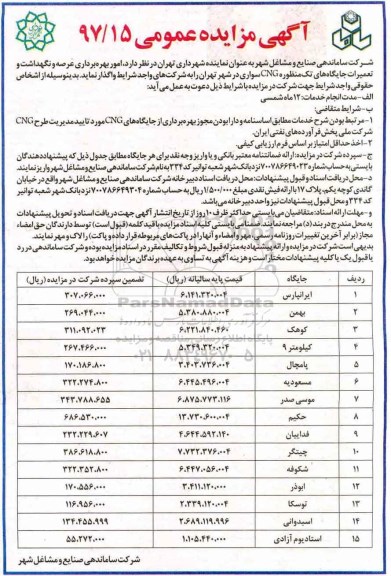 آگهی مزایده عمومی ۹۷/۱۵
شرکت ساماندهی صنایع و مشاغل شهر به عنوان نماینده شهرداری تهران در نظر دارد، امور بهره‌برداری عرصه و نگهداشت و
تعمیرات جایگاه‌های تک منظوره CNG سواری در شهر تهران را به شرکت‌های واجد شرایط واگذار نماید. بدینوسیله از اشخاص
حقوقی واجد شرایط جهت شرکت در مزایده با شرایط ذیل دعوت به عمل می‌آید:
الف- مدت انجام خدمات: ۱۲ ماه شمسی
ب- شرایط متقاضی:
۱- مرتبط بودن شرح خدمات مطابق اساسنامه و دارا بودن مجوز بهره‌برداری از جایگاه‌های CNG مورد تایید مدیریت طرح CNG
شرکت ملی پخش فرآورده‌های نفتی ایران.
۲- اخذ حداقل امتیاز بر اساس فرم ارزیابی کیفی.
ج- سپرده شرکت در مزایده: ارائه ضمانتنامه معتبر بانکی و یا واریز وجه نقد برای هر جایگاه مطابق جدول ذیل که پیشنهاددهندگان
بایستی به حساب شماره ۷۰۰۷۸۶۶۴۹۰۲۳ نزد بانک شهر شعبه توانیر کد ۳۳۴ به نام شرکت ساماندهی صنایع و مشاغل شهر واریز نمایند.
د- محل دریافت اسناد و قبول پیشنهادات: محل دریافت اسناد دبیرخانه شرکت ساماندهی صنایع و مشاغل شهر واقع در خیابان
گاندی کوچه یکم، پلاک ۱۷ با ارائه فیش نقدی مبلغ ۱/۵۰۰/۰۰۰ ریال به حساب شماره ۷۰۰۷۸۶۶۴۹۳۰۴ نزد بانک شهر شعبه توانیر کد
۳۳۴ و محل قبول پیشنهادات نیز واحد دبیرخانه می باشد.
و- مهلت ارائه اسناد: متقاضیان می‌بایستی حداکثر ظرف ۱۰ روز از تاریخ انتشار آگهی جهت دریافت اسناد و تحویل پیشنهادات
به محل مندرج در بند (د) مراجعه نمایند.
بدیهی است شرکت در مزایده و ارائه پیشنهاد به منزله قبول شروط و تکالیف مقرر در اسناد مزایده بوده و شرکت ساماندهی در رد
یا قبول یک یا کلیه پیشنهادات مختار است و هزینه آگهی به تساوی به عهده برندگان مزایده خواهد بود.
ردیف جایگاه قیمت پایه سالیانه (ریال) تضمین سپرده شرکت در مزایده (ریال)
۱ ایرانپارس ۶.۱۴۱.۳۲۰.۰۰۴ ۳۰۷.۰۶۶.۰۰۰
۲ بهمن ۵.۳۸۰.۸۸۰.۰۰۴ ۲۶۹.۰۴۴.۰۰۰
۳ کوهک ۶.۲۲۱.۸۴۰.۴۶۰ ۳۱۱.۰۹۲.۰۲۳
۴ کیلومتر ۹ ۵.۳۴۹.۳۲۰.۰۰۴ ۲۶۷.۴۶۶.۰۰۰
۵ پامچال ۳.۴۰۳.۷۳۶.۰۰۴ ۱۷۰.۱۸۶.۸۰۰
۶ مسعودیه ۶.۴۴۵.۴۹۶.۰۰۴ ۳۲۲.۲۷۴.۸۰۰
۷ موسی صدر ۶.۸۷۵.۷۷۳.۱۱۶ ۳۴۳.۷۸۸.۶۵۵
۸ حکیم ۱۳.۷۳۰.۶۰۰.۰۰۴ ۶۸۶.۵۳۰.۰۰۰
۹ فداییان ۴.۶۴۴.۵۹۲.۱۴۰ ۲۳۲.۲۲۹.۶۰۷
۱۰ چیتگر ۷.۷۳۲.۳۷۶.۰۰۴ ۳۸۶.۶۱۸.۸۰۰
۱۱ شکوفه ۶.۴۴۷.۰۵۶.۰۰۴ ۳۲۲.۳۵۲.۸۰۰
۱۲ ابوذر ۳.۴۱۱.۱۲۰.۰۰۰ ۱۷۰.۵۵۶.۰۰۰
۱۳ توسکا ۲.۳۳۹.۱۲۰.۰۰۴ ۱۱۶.۹۵۶.۰۰۰
۱۴ اسبدوانی ۲.۶۸۹.۱۱۹.۹۹۶ ۱۳۴.۴۵۵.۹۹۹
۱۵ استادیوم آزادی ۱.۱۰۵.۴۴۰.۰۰۰ ۵۵.۲۷۲.۰۰۰
ParsNamadData
۰۲۱-۸۸۳۴۹۶۷۰-۵
شرکت ساماندهی صنایع و مشاغل شهر